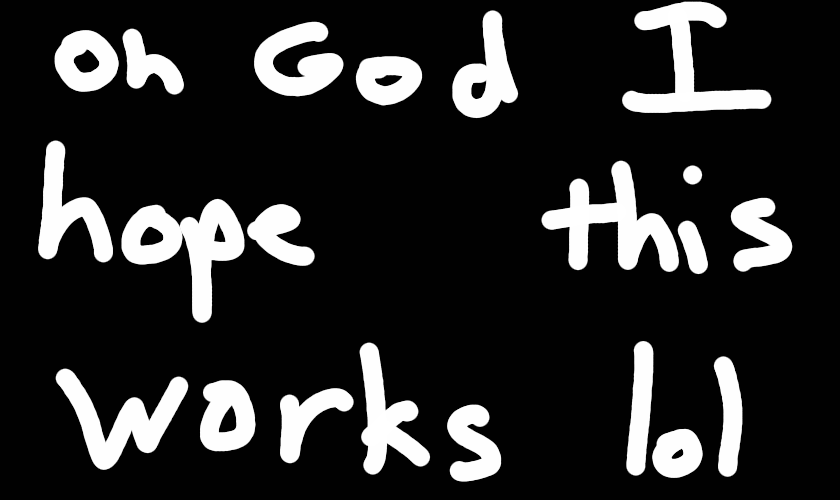 oh God I
hope this
works lol